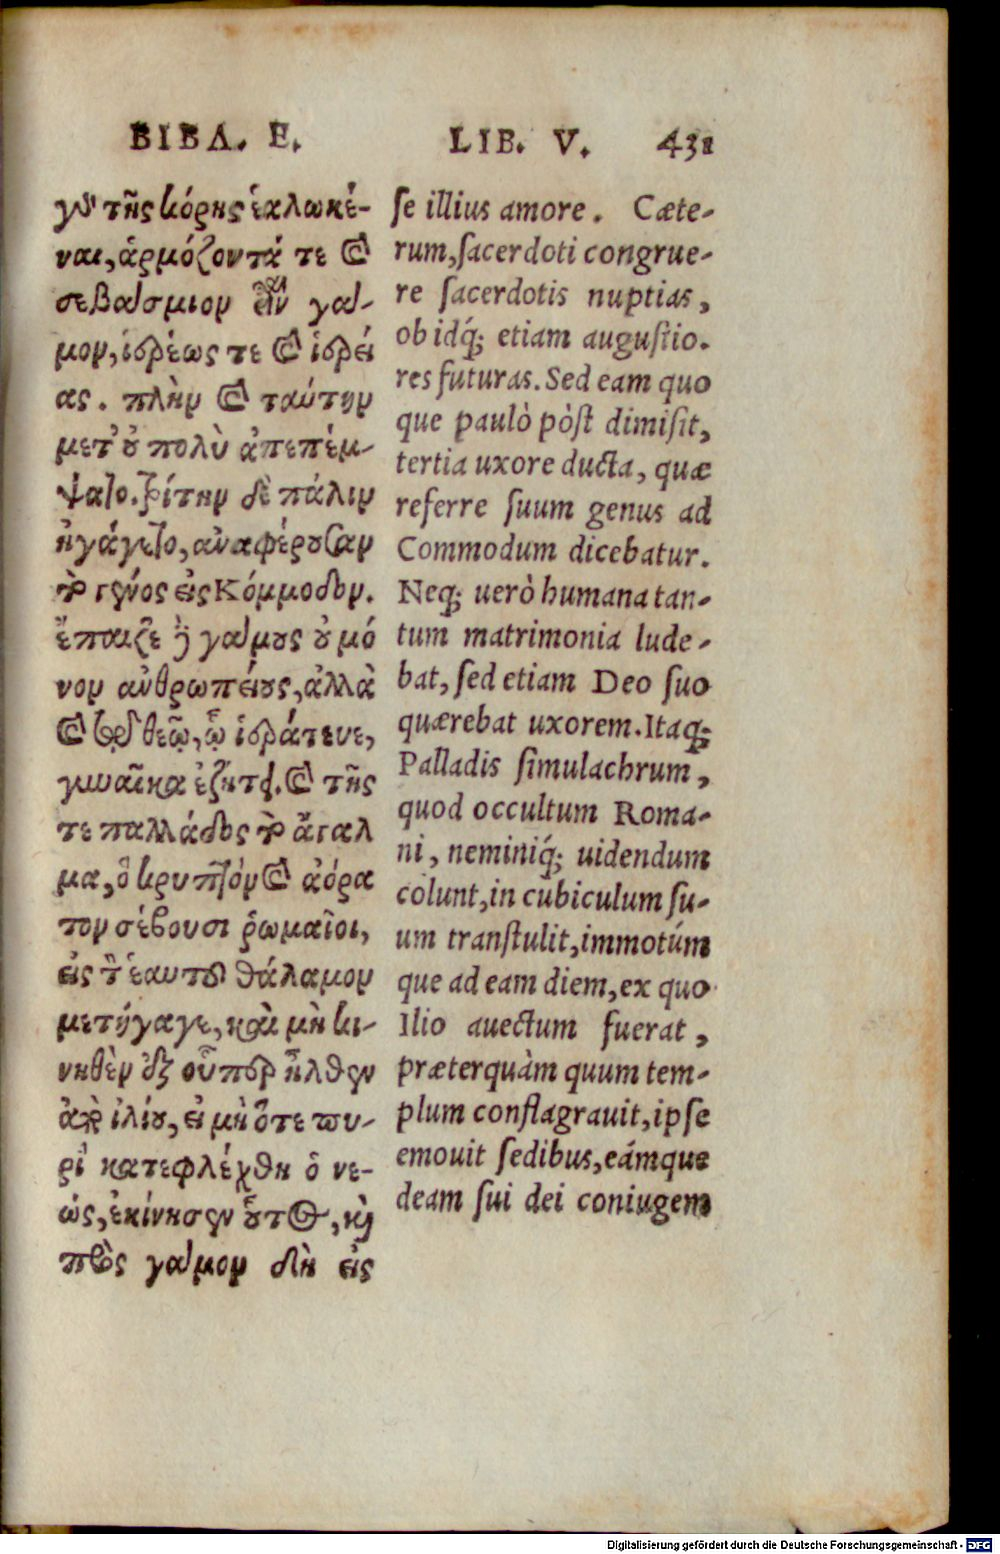 ΒΙΒΛ. Ε.
γῦ τῆς κόρης ἑαλωκέ-
ναι, ἁρμόζοντά τε καὶ
σεβάσμιον εἶναι γά-
μον, ἱερέως τε καὶ ἱερεί
ας. πλὴν καὶ ταύτην
μετ' οὐ πολὺ ἀπεπέμ-
ψατο. τρίτην δὲ πάλιν
ἠγάγετο, ἀναφέρουσαν
τὸ γένος εἰς Κόμμοδον.
ἔπαιζε δὲ γάμους οὐ μό
νον ἀνθρωπείους, ἀλλὰ
καὶ τῷ θεῷ, ᾧ ἱεράτευε,
γυναῖκα ἐζήτει. καὶ τῆς
τε παλλάδος τὸ ἄγαλ
μα, ὃ κρυπτὸν καὶ ἀόρα
τον σέβουσι ῥωμαῖοι,
εἰς τὸν ἑαυτοῦ θάλαμον
μετήγαγε, καὶ μὴ κι-
νηθὲν ἐξ οὗπερ ἦλθεν
ἀπὸ ἰλίου, εἰ μὴ ὅτε πυ-
ρὶ κατεφλέχθη ὁ νε-
ώς, ἐκίνησεν οὗτος, καὶ
πρὸς γάμον δὴ εἰς
LIB. V. 431
se illius amore. Cæte-
rum, sacerdoti congrue-
re sacerdotis nuptias,
ob idq́; etiam augustio.
res futuras. Sed eam quo
que paulò pòst dimisit,
tertia uxore ducta, quæ
referre suum genus ad
Commodum dicebatur.
Neq; uerò humana tan-
tum matrimonia lude-
bat, sed etiam Deo suo
quærebat uxorem. Itaq;
Palladis simulachrum,
quod occultum Roma-
ni, neminiq́; uidendum
colunt, in cubiculum su-
um transtulit, immotúm
que ad eam diem, ex quo
Ilio auectum fuerat,
præterquàm quum tem-
plum conflagrauit, ipse
emouit sedibus, eámque
deam sui dei coniugem
Digitalisierung gefördert durch die Deutsche Forschungsgemeinschaft - DFG